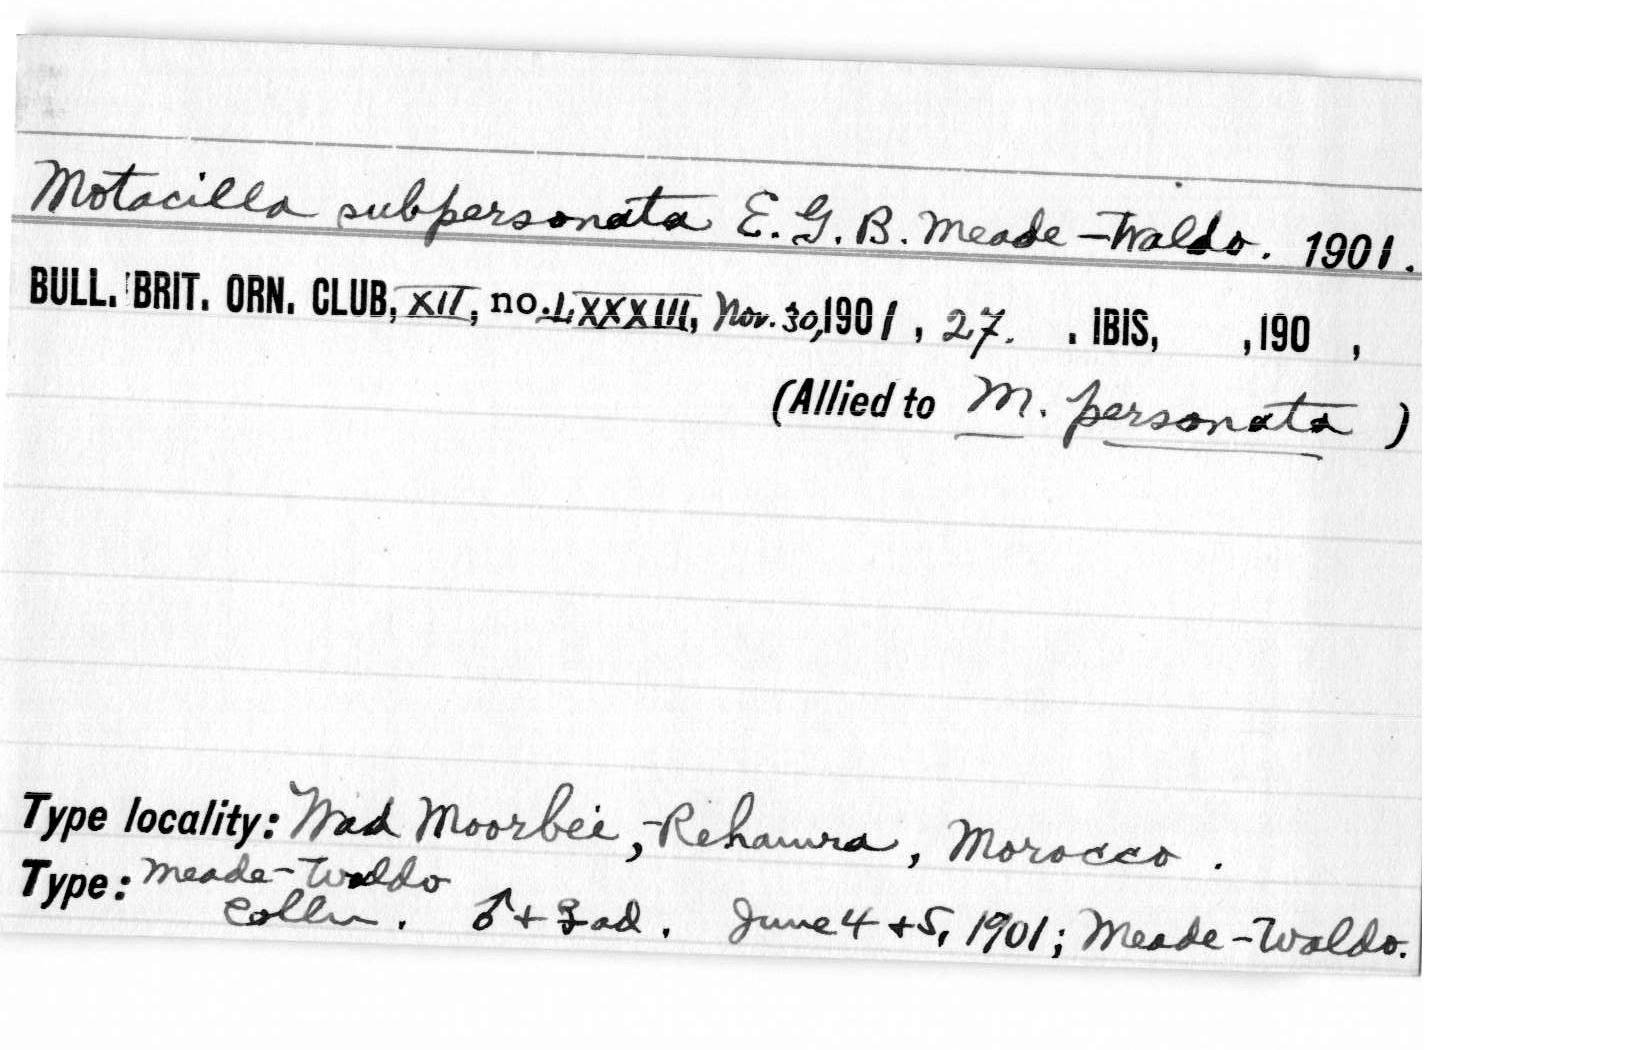 Motacilla subpersonata E. G. B. Meade-Waldo. 1901.
BULL. BRIT. ORN. CLUB, XII, no. LXXXIII, Nov. 30, 1901, 27. . IBIS, ,190 ,
(Allied to M. personata )
Type locality: Wad Moorbei, Rehamra, Morocco.
Type: Meade-Waldo
Colln. ♂ + ♀ ad. June 4 + 5, 1901; Meade-Waldo.